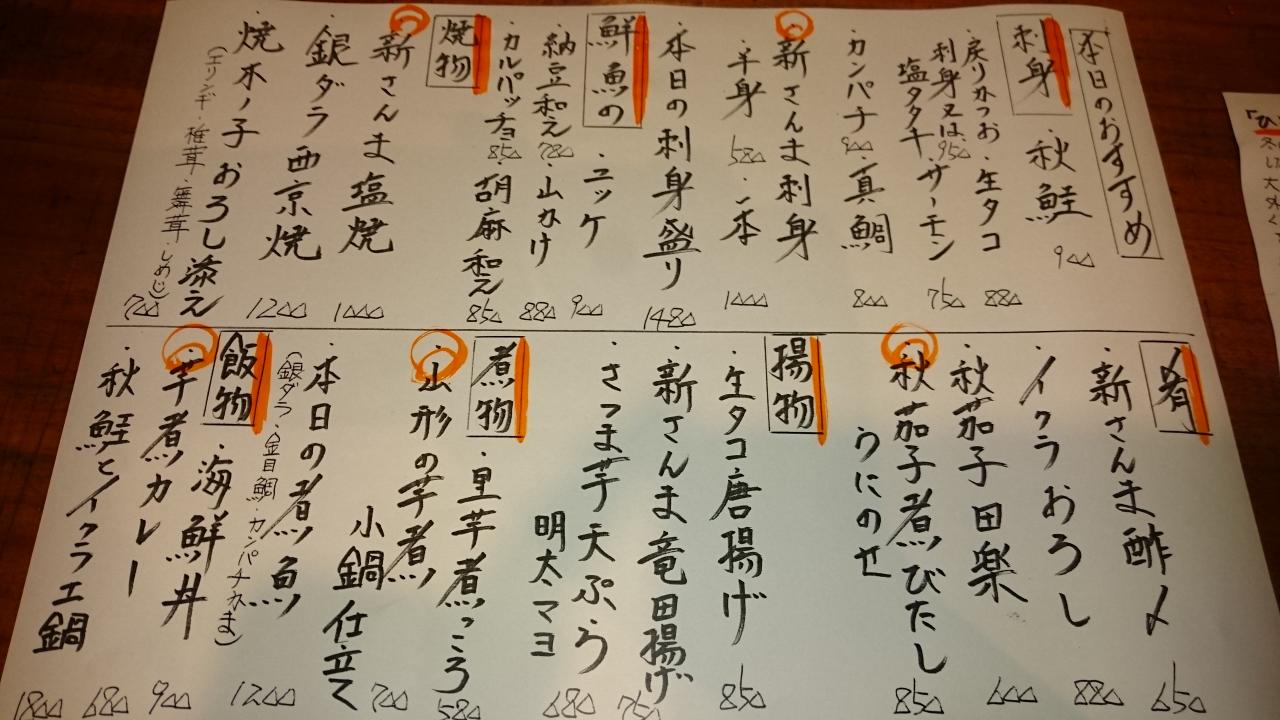 本日のおすすめ
刺身
・秋鮭 900
・戻りかつお
刺身又は、
塩タタキ 950
・生タコ 880
・サーモン 750
・カンパチ 900
・真鯛 800
・新さんま刺身
・半身 580
・一本 1000
・本日の刺身盛り 1480
鮮魚の
・ユッケ 900
・納豆和え 780
・山かけ 880
・カルパッチョ 850
・胡麻和え 850
焼物
・新さんま塩焼 1000
・銀ダラ西京焼 1200
・焼木ノ子おろし添え
(エリンギ・椎茸・舞茸・しめじ) 700
肴
・新さんま酢〆 650
・イクラおろし 880
・秋茄子田楽 600
・秋茄子煮びたし
うにのせ 850
揚物
・生タコ唐揚げ 850
・新さんま竜田揚げ 750
・さつま芋天ぷら
明太マヨ 680
煮物
・里芋煮っころ 580
・山形の芋煮
小鍋仕立て 700
・本日の煮魚
(銀ダラ・金目鯛・カンパチかま) 1200
飯物
・海鮮丼 900
・芋煮カレー 680
・秋鮭とイクラ土鍋 1800
「ひ